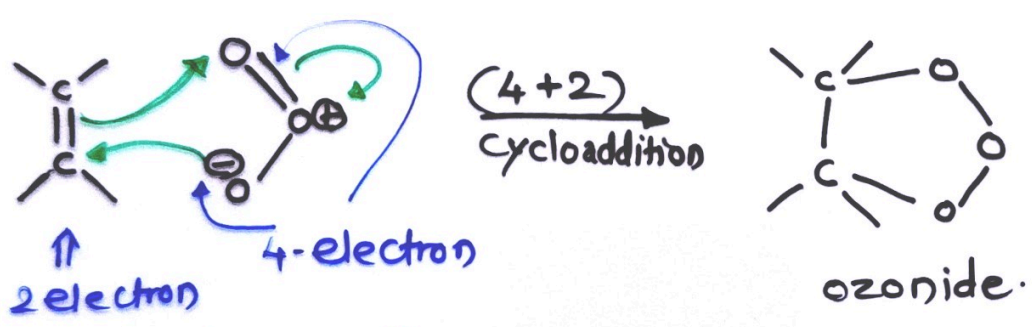 C
C
O
O⊕
⊖
O
(4+2)
cycloaddition
C
O
O
C
O
4-electron
2 electron
ozonide.